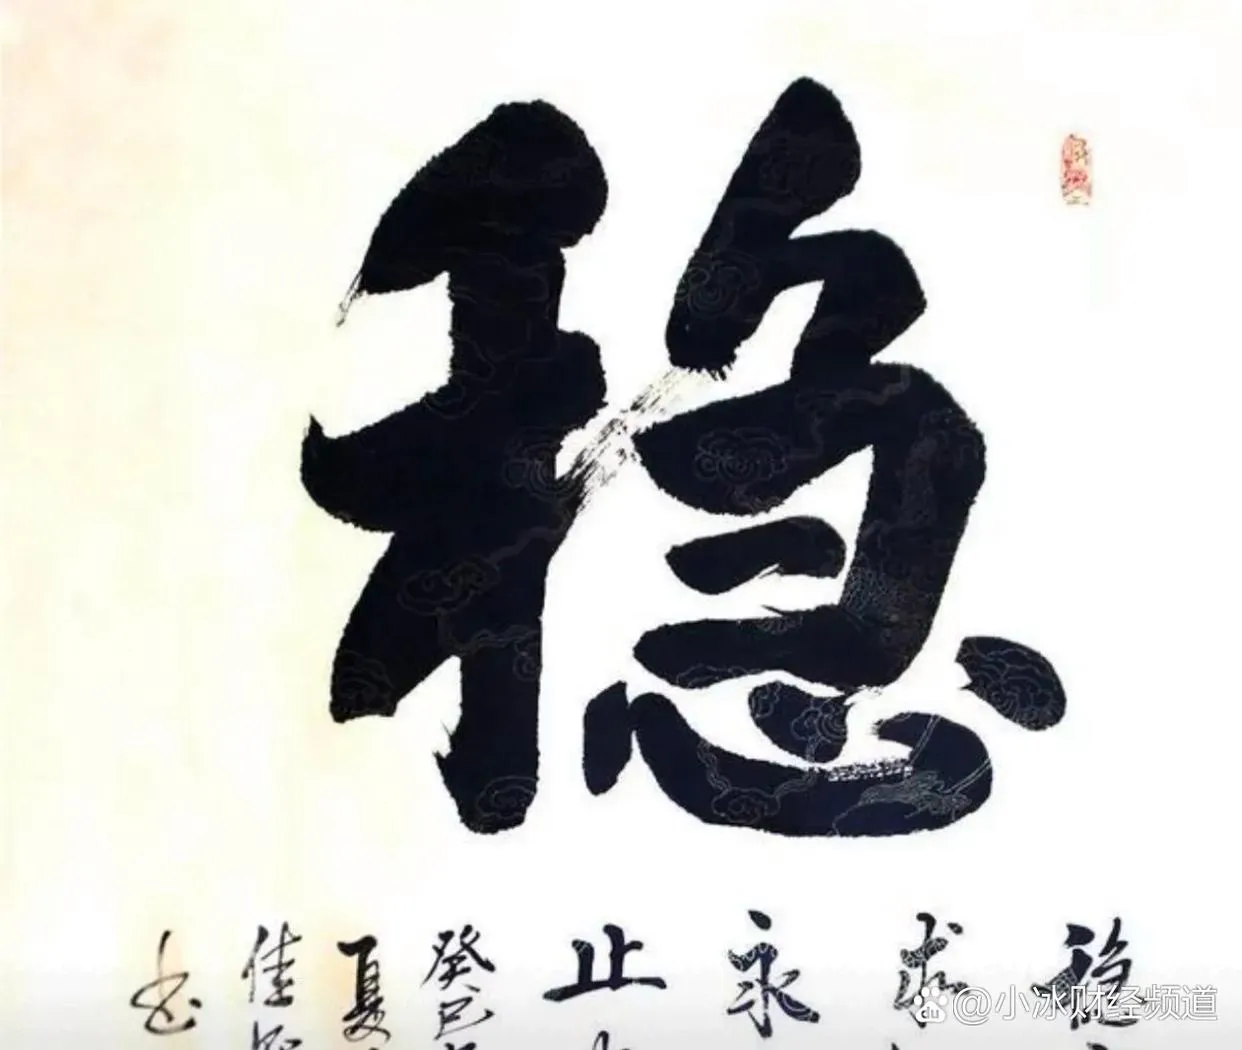 稳
稳
求
永
止
癸巳
夏
佳
书
@小冰财经频道